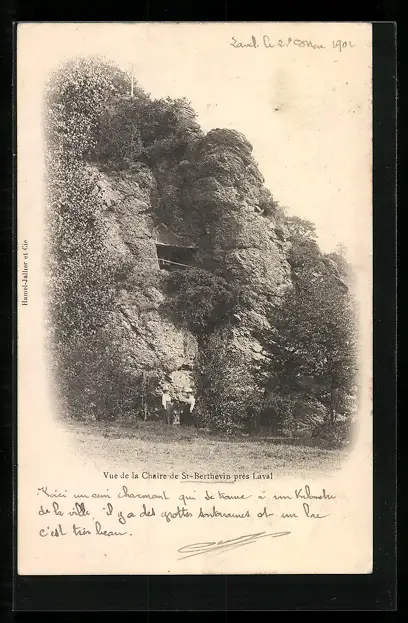 Laval le 1901
Hamel-Jalher et Cie
Vue de la Chaire de St-Berthevin près Laval
Voici un coin charmant qui se trouve à un Kilomètre
de la ville il y a des grottes souterraines et un lac
c'est très beau.